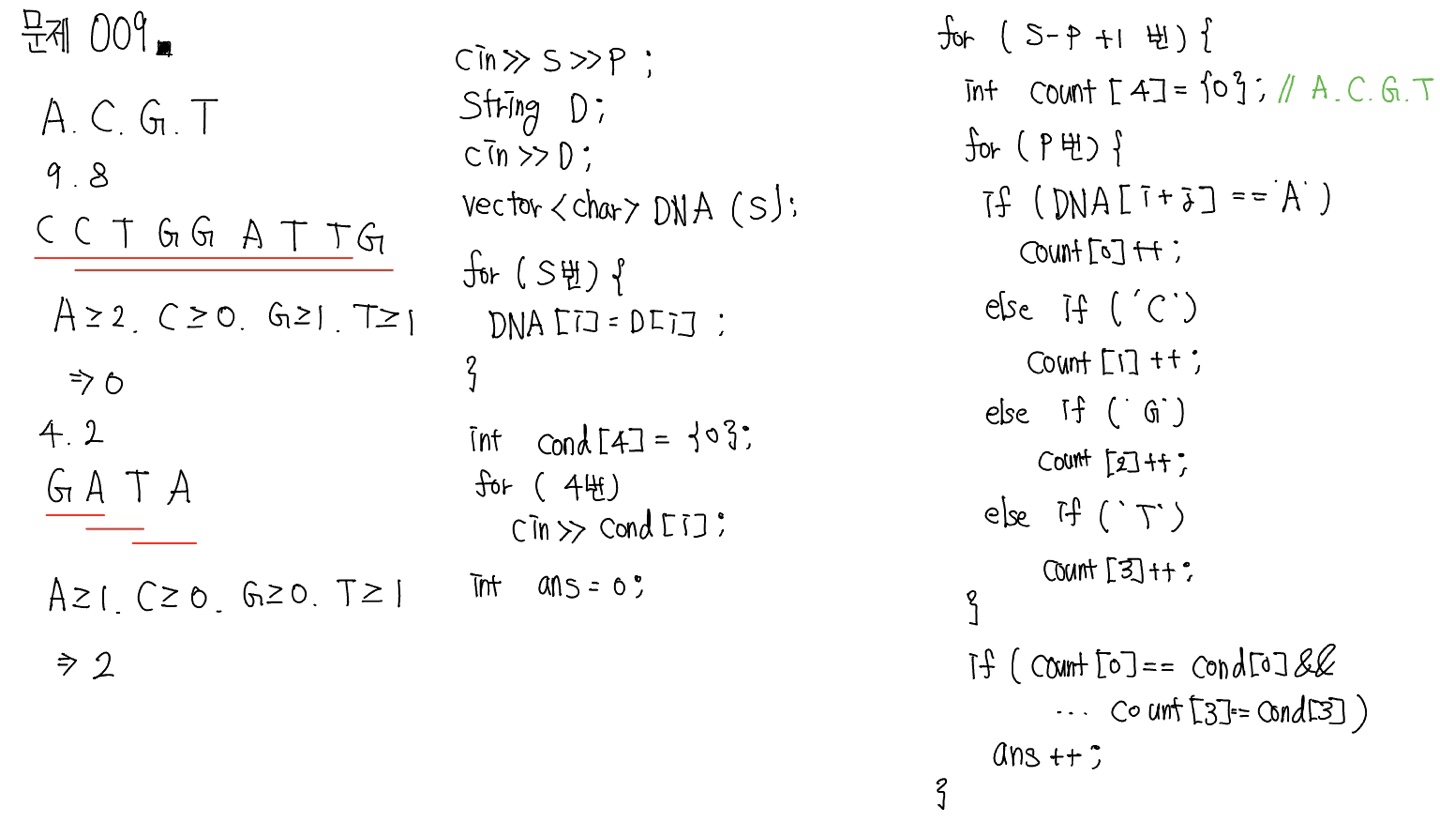 문제 009.
A.C.G.T
9.8
CCTGGATTG
A≥2. C≥0. G≥1. T≥1
⇒ 0
4.2
GATA
A≥1. C≥0. G≥0. T≥1
⇒ 2
cin>> S >>P ;
String D;
cin>>D;
vector<char> DNA (S);
for (S번) {
DNA [i] = D[i] ;
}
int cond[4] = {0};
for ( 4번)
cin>> cond[i];
int ans = 0;
for ( S-P +1 번) {
int count [4] = {0}; // A.C.G.T
for (P번) {
if (DNA[i+j] == 'A')
count[0]++;
else if ('C')
count[1]++;
else if ('G')
count [2]++;
else if ('T')
count [3]++;
}
if (count[0]== cond[0] &&
... count[3]== cond[3])
ans ++;
}